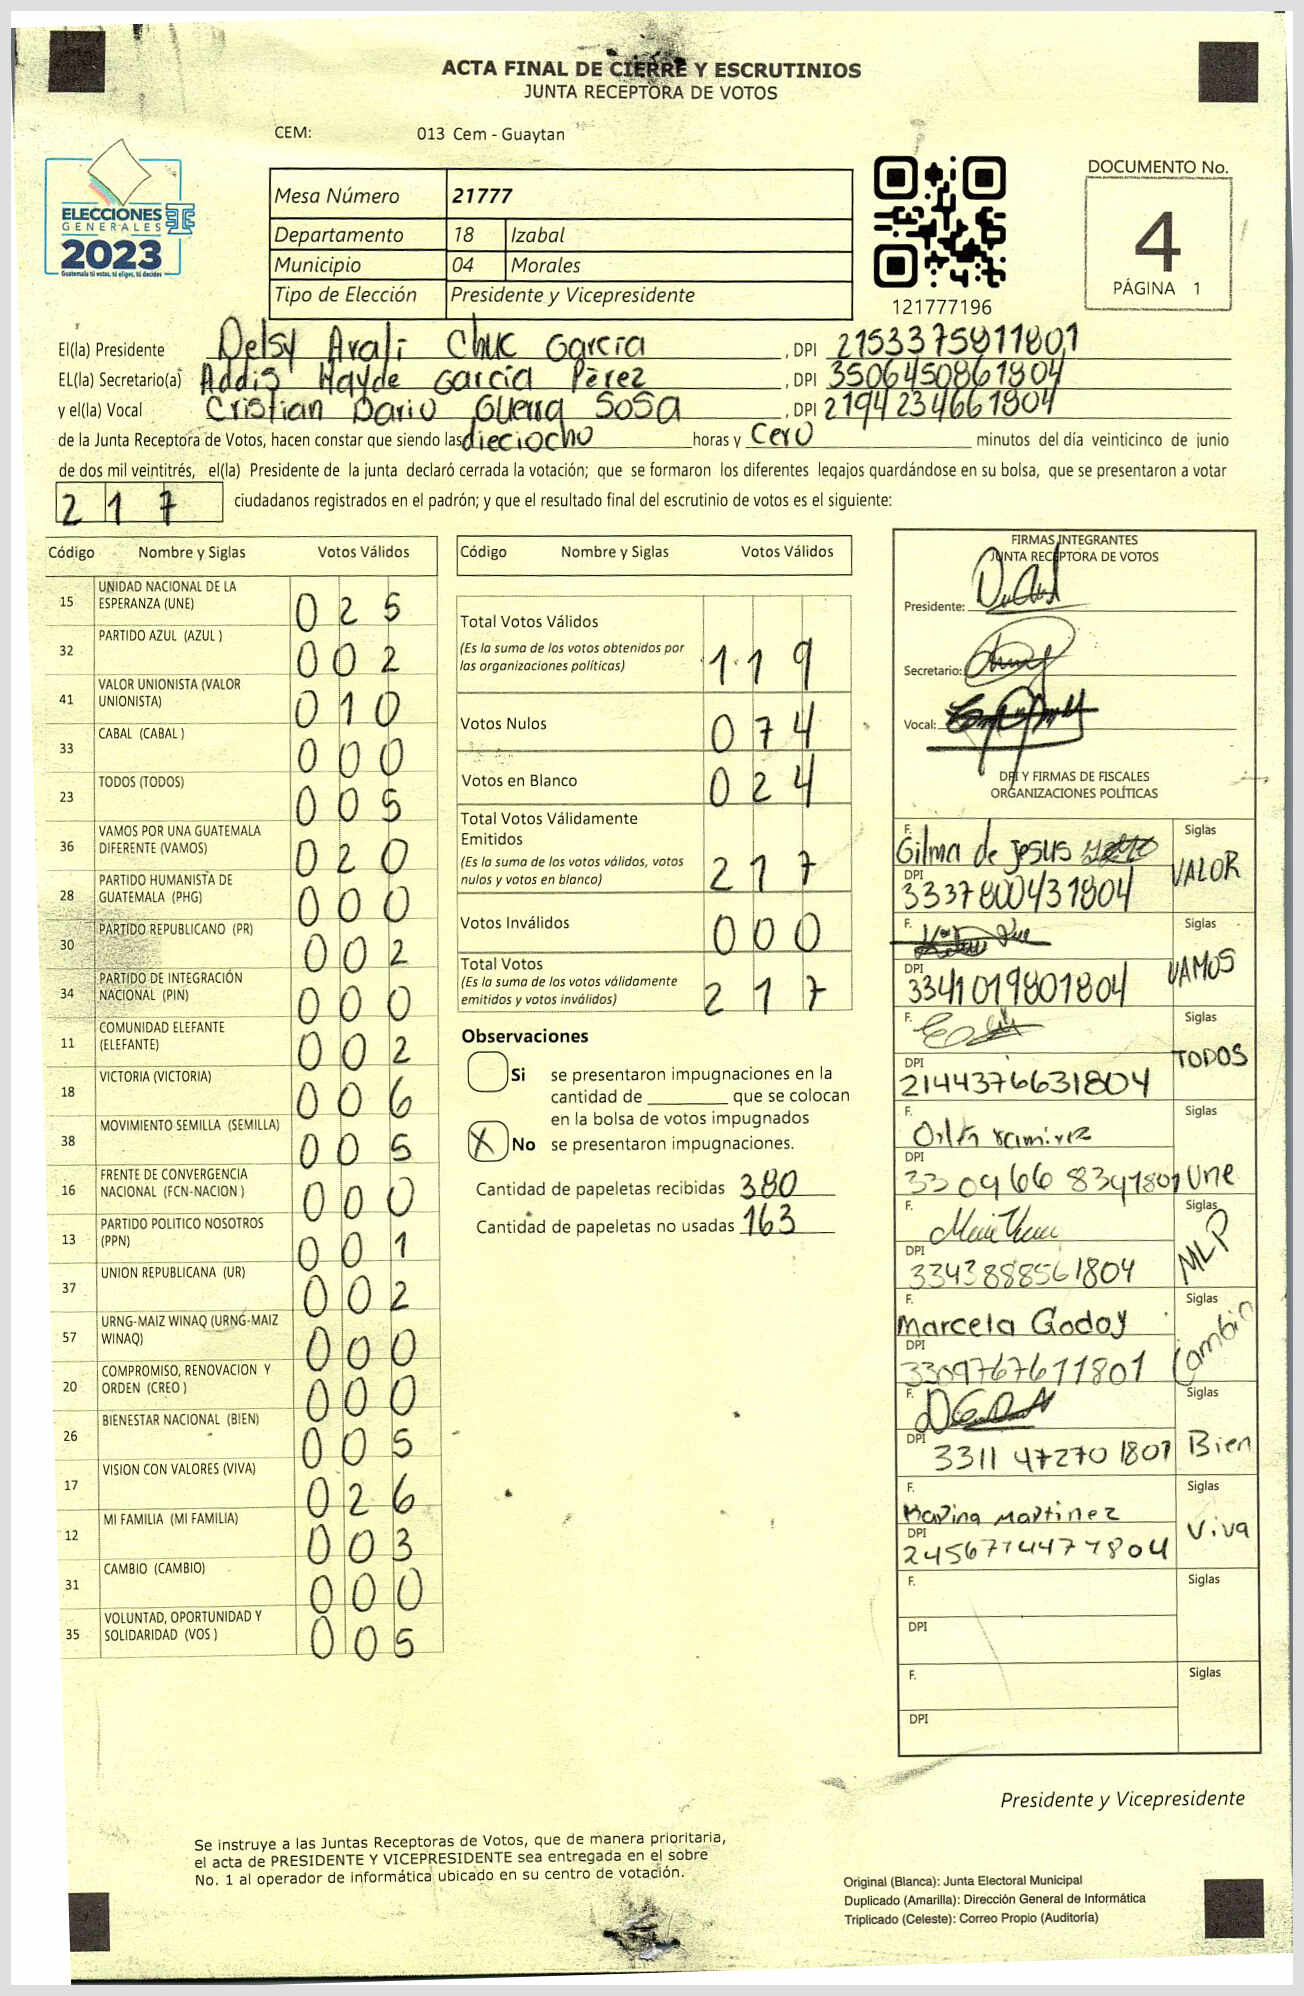 ACTA FINAL DE CIERRE Y ESCRUTINIOS
JUNTA RECEPTORA DE VOTOS
CEM: 013 Cem - Guaytan
ELECCIONES
GENERALES
2023
Guatemala tú votas, tú eliges, tú decides
Mesa Número 21777
Departamento 18 Izabal
Municipio 04 Morales
Tipo de Elección Presidente y Vicepresidente
121777196
DOCUMENTO No.
4
PÁGINA 1
El(la) Presidente Delsy Arali Chuc Garcia, DPI 2153375911801
EL(la) Secretario(a) Addis Hayde Garcia Pèrez, DPI 3506450861804
y el(la) Vocal Cristian Dario Guerra Sosa, DPI 2194234661804
de la Junta Receptora de Votos, hacen constar que siendo las dieciocho horas y Cero minutos del día veinticinco de junio
de dos mil veintitrés, el(la) Presidente de la junta declaró cerrada la votación; que se formaron los diferentes legajos guardándose en su bolsa, que se presentaron a votar
217 ciudadanos registrados en el padrón; y que el resultado final del escrutinio de votos es el siguiente:
Código Nombre y Siglas Votos Válidos
15 UNIDAD NACIONAL DE LA ESPERANZA (UNE) 025
32 PARTIDO AZUL (AZUL ) 002
41 VALOR UNIONISTA (VALOR UNIONISTA) 010
33 CABAL (CABAL ) 000
23 TODOS (TODOS) 005
36 VAMOS POR UNA GUATEMALA DIFERENTE (VAMOS) 020
28 PARTIDO HUMANISTA DE GUATEMALA (PHG) 000
30 PARTIDO REPUBLICANO (PR) 002
34 PARTIDO DE INTEGRACIÓN NACIONAL (PIN) 000
11 COMUNIDAD ELEFANTE (ELEFANTE) 002
18 VICTORIA (VICTORIA) 006
38 MOVIMIENTO SEMILLA (SEMILLA) 005
16 FRENTE DE CONVERGENCIA NACIONAL (FCN-NACION ) 000
13 PARTIDO POLITICO NOSOTROS (PPN) 001
37 UNION REPUBLICANA (UR) 002
57 URNG-MAIZ WINAQ (URNG-MAIZ WINAQ) 000
20 COMPROMISO, RENOVACION Y ORDEN (CREO ) 000
26 BIENESTAR NACIONAL (BIEN) 005
17 VISION CON VALORES (VIVA) 026
12 MI FAMILIA (MI FAMILIA) 003
31 CAMBIO (CAMBIO) 000
35 VOLUNTAD, OPORTUNIDAD Y SOLIDARIDAD (VOS ) 005
Código Nombre y Siglas Votos Válidos
Total Votos Válidos
(Es la suma de los votos obtenidos por
las organizaciones políticas) 119
Votos Nulos 074
Votos en Blanco 024
Total Votos Válidamente
Emitidos
(Es la suma de los votos válidos, votos
nulos y votos en blanco) 217
Votos Inválidos 000
Total Votos
(Es la suma de los votos válidamente
emitidos y votos inválidos) 217
Observaciones
Si se presentaron impugnaciones en la
cantidad de ________ que se colocan
en la bolsa de votos impugnados
X No se presentaron impugnaciones.
Cantidad de papeletas recibidas 380
Cantidad de papeletas no usadas 163
FIRMAS INTEGRANTES
JUNTA RECEPTORA DE VOTOS
Presidente:
Secretario:
Vocal:
DPI Y FIRMAS DE FISCALES
ORGANIZACIONES POLÍTICAS
F. Gilma de Jesus Siglas
DPI 3337800431804 VALOR
F. Siglas
DPI 3341019801804 VAMOS
F. Siglas
DPI 2144376631804 TODOS
F. ramirez Siglas
DPI 3304668341801 Une
F. Siglas
DPI 3343888561804 MLP
F. Marcela Godoy Siglas
DPI 3309767611801 Cambio
F. Siglas
DPI 3311472701801 Bien
F. Karina Martinez Siglas
DPI 2456714471804 Viva
F. Siglas
DPI
F. Siglas
DPI
Presidente y Vicepresidente
Se instruye a las Juntas Receptoras de Votos, que de manera prioritaria,
el acta de PRESIDENTE Y VICEPRESIDENTE sea entregada en el sobre
No. 1 al operador de informática ubicado en su centro de votación.
Original (Blanca): Junta Electoral Municipal
Duplicado (Amarilla): Dirección General de Informática
Triplicado (Celeste): Correo Propio (Auditoría)